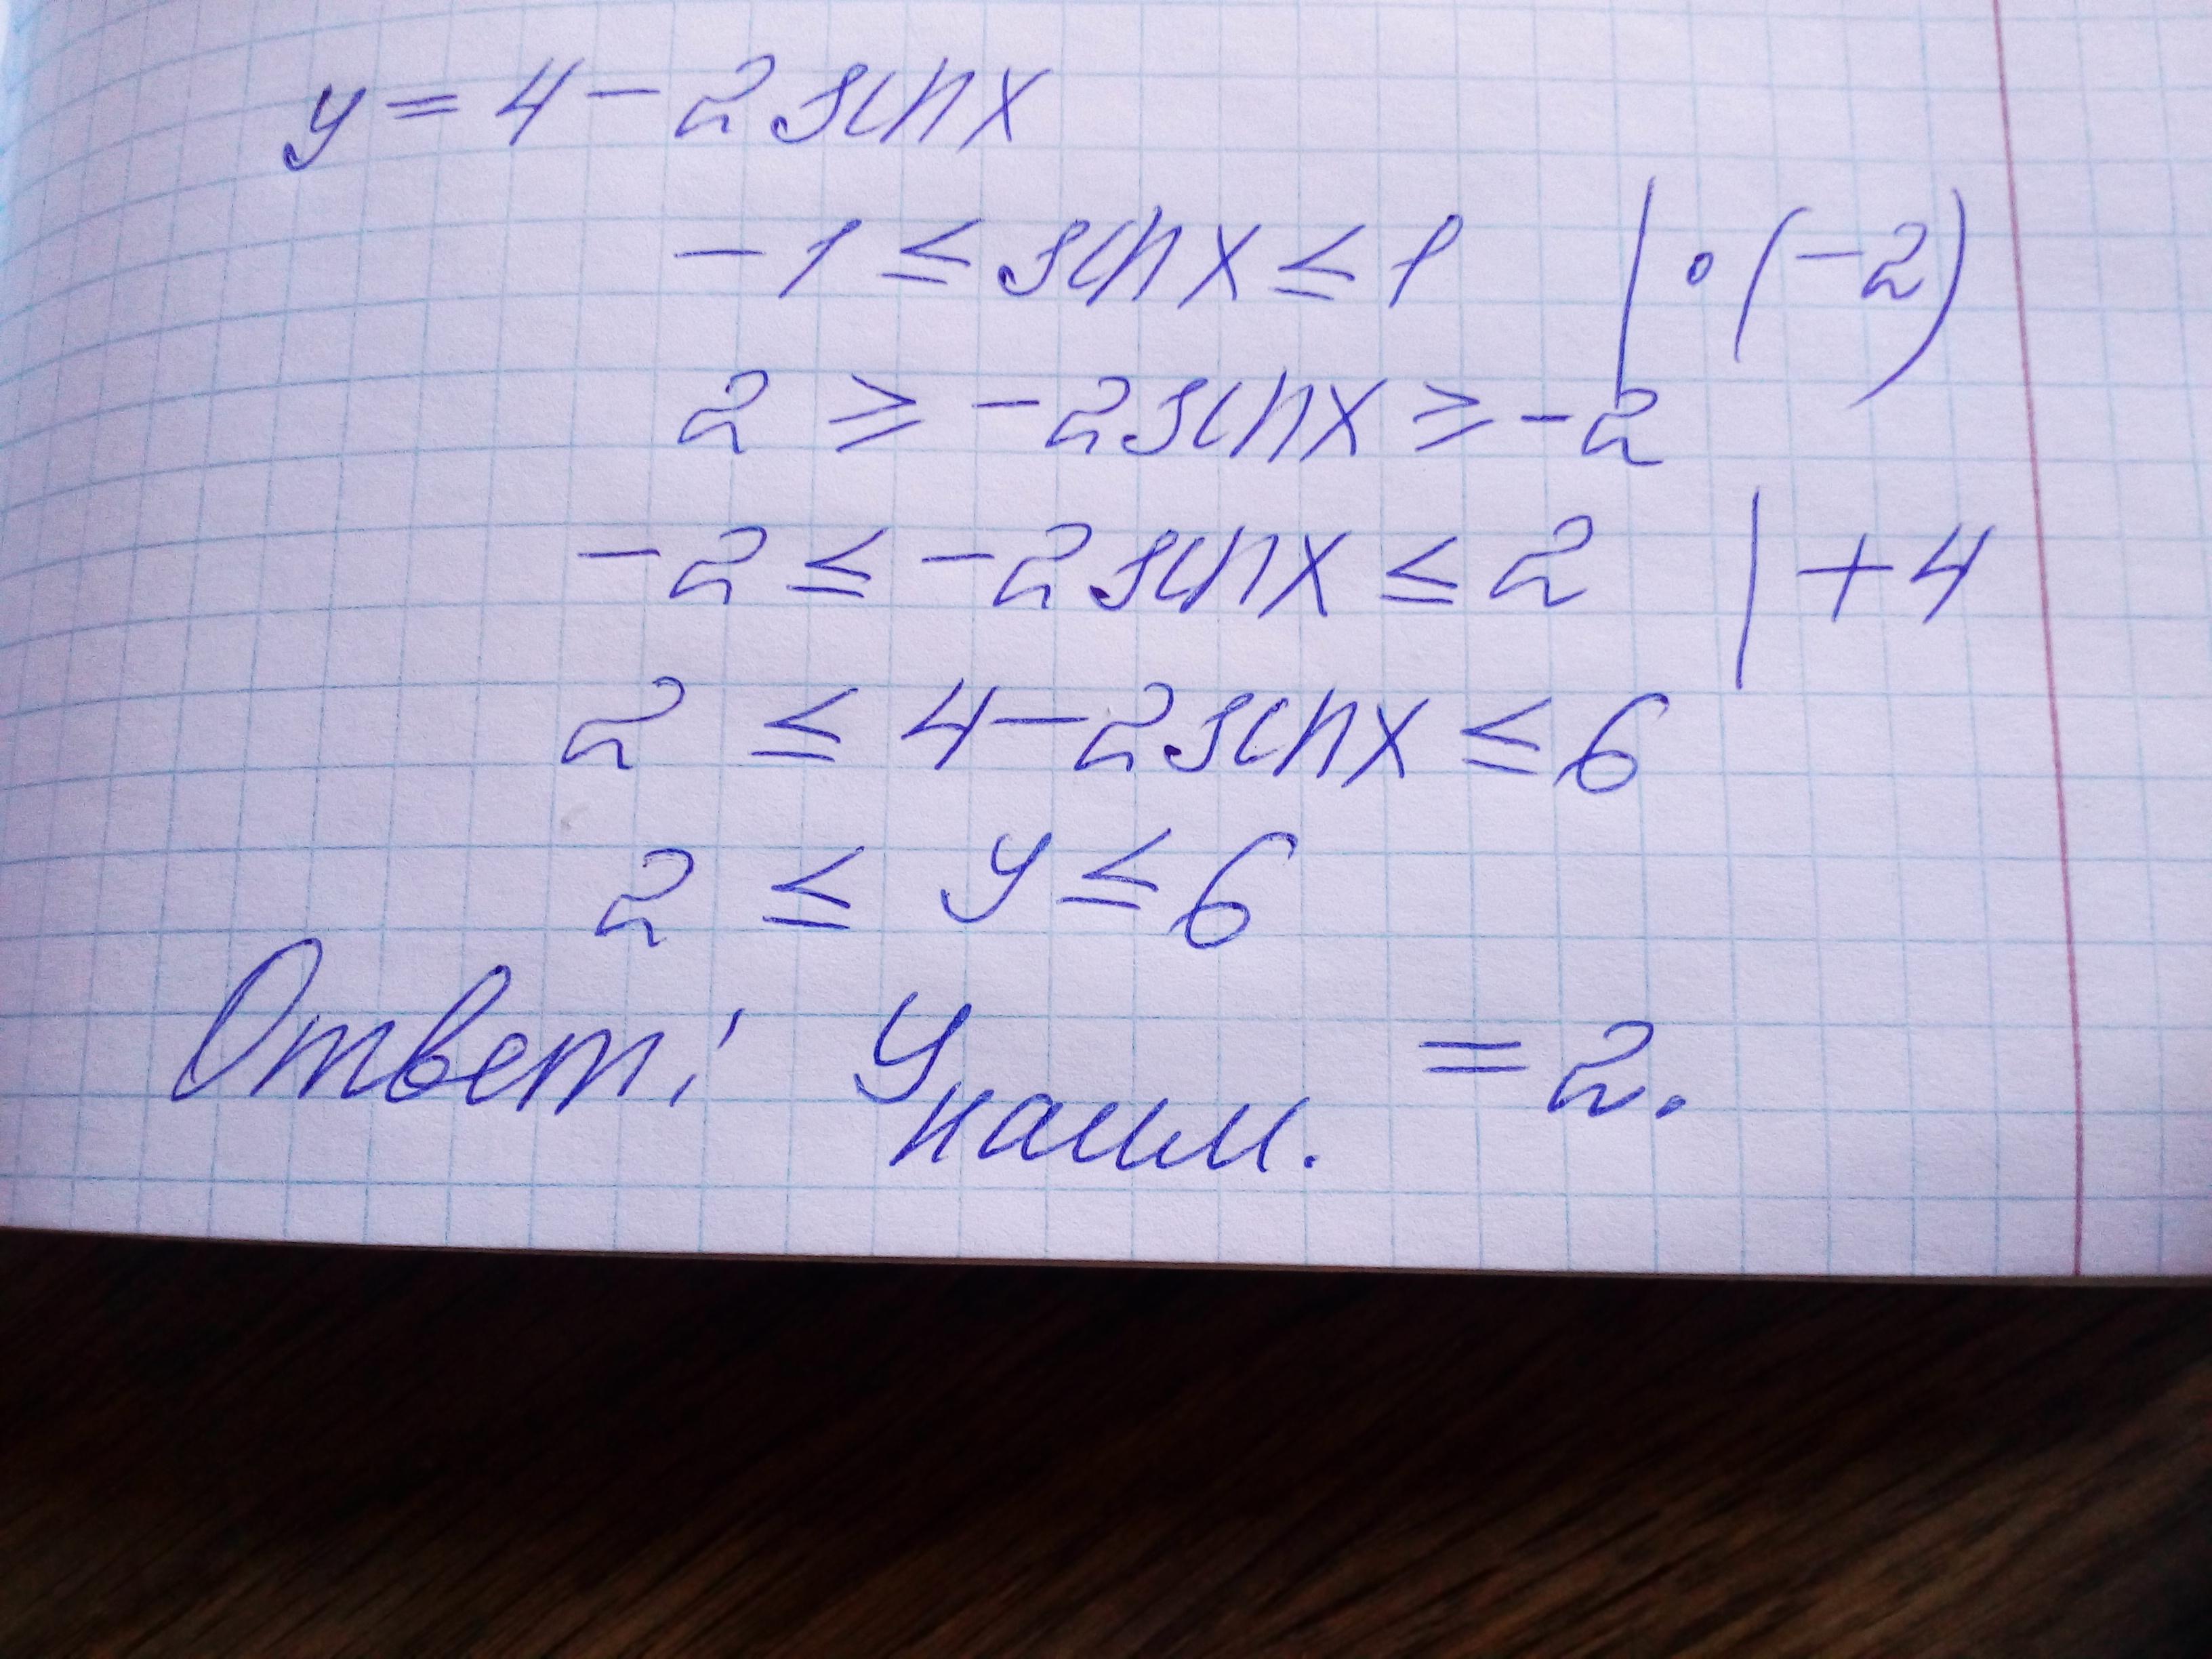 y = 4 - 2 sin x
-1 ≤ sin x ≤ 1 | · (-2)
2 ≥ -2 sin x ≥ -2
-2 ≤ -2 sin x ≤ 2 | + 4
2 ≤ 4 - 2 sin x ≤ 6
2 ≤ y ≤ 6
Ответ: y наим. = 2.